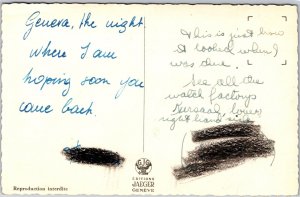 Geneva, the night
where I am
hoping soon you
come back.
This is just how
it looked when I
was there.
See all the
watch factorys
right hand side
EDITIONS
JAEGER
GENÈVE
Reproduction interdite